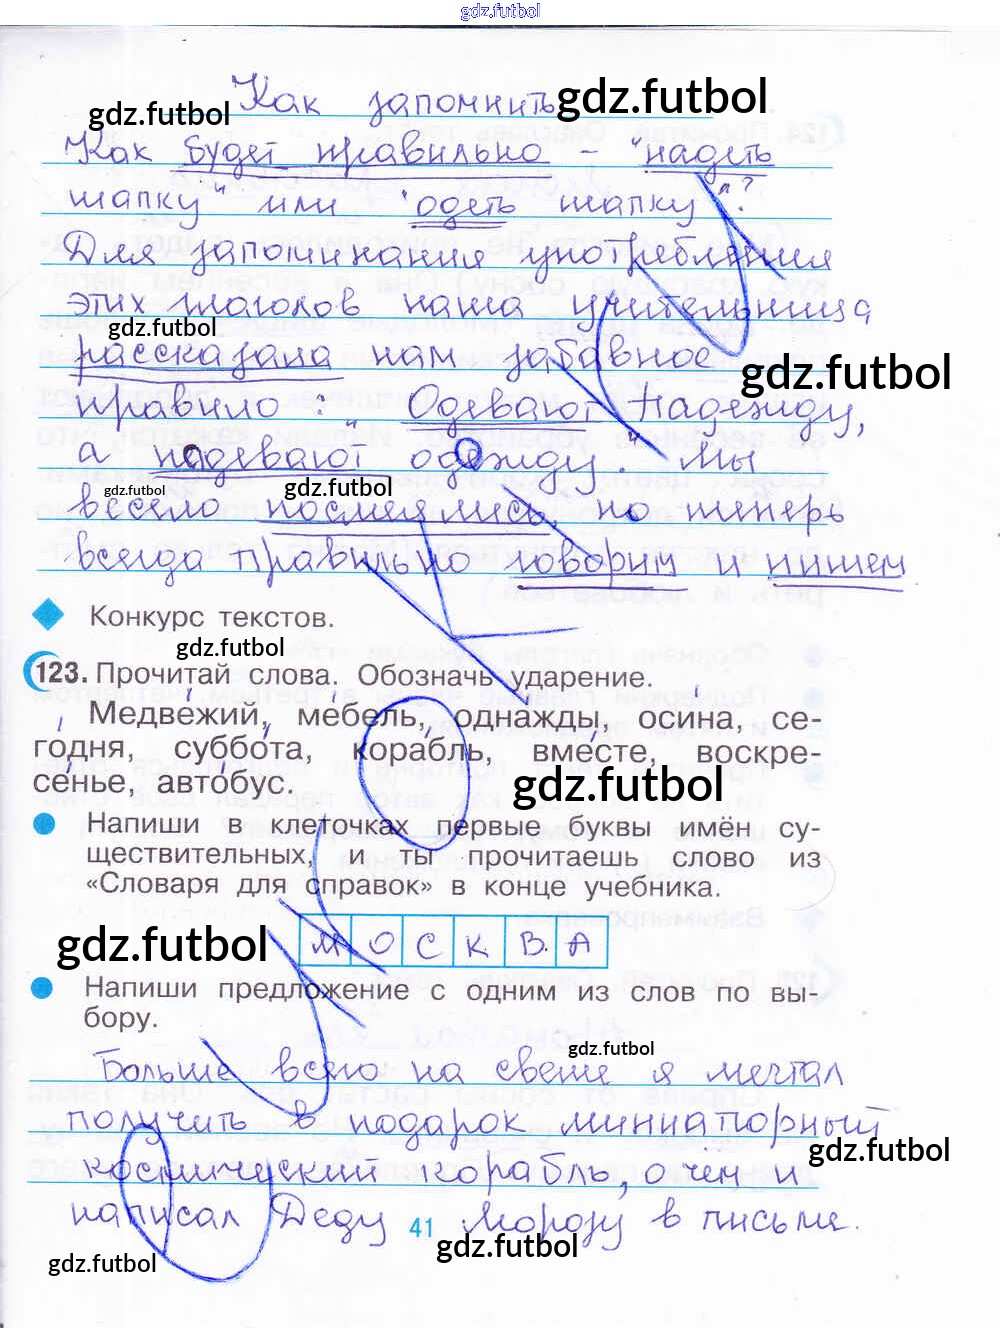 gdz.futbol
Как запомнить gdz.futbol
gdz.futbol
Как будет правильно - "надеть
шапку" или "одеть шапку"?
Для запоминания употребления
этих глаголов наша учительница
gdz.futbol
рассказала нам забавное
gdz.futbol
правило: "Одевают Надежду,
а надевают одежду." Мы
gdz.futbol gdz.futbol
весело посмеялись, но теперь
всегда правильно говорим и пишем
Конкурс текстов.
gdz.futbol
123. Прочитай слова. Обозначь ударение.
Медвежий, мебель, однажды, осина, се-
годня, суббота, корабль, вместе, воскре-
сенье, автобус.
gdz.futbol
Напиши в клеточках первые буквы имён су-
ществительных, и ты прочитаешь слово из
«Словаря для справок» в конце учебника.
gdz.futbol
М О С К В А
Напиши предложение с одним из слов по вы-
бору.
gdz.futbol
Больше всего на свете я мечтал
получить в подарок миниатюрный
gdz.futbol
космический корабль, о чём и
написал Деду Морозу в письме.
41
gdz.futbol
gdz.futbol